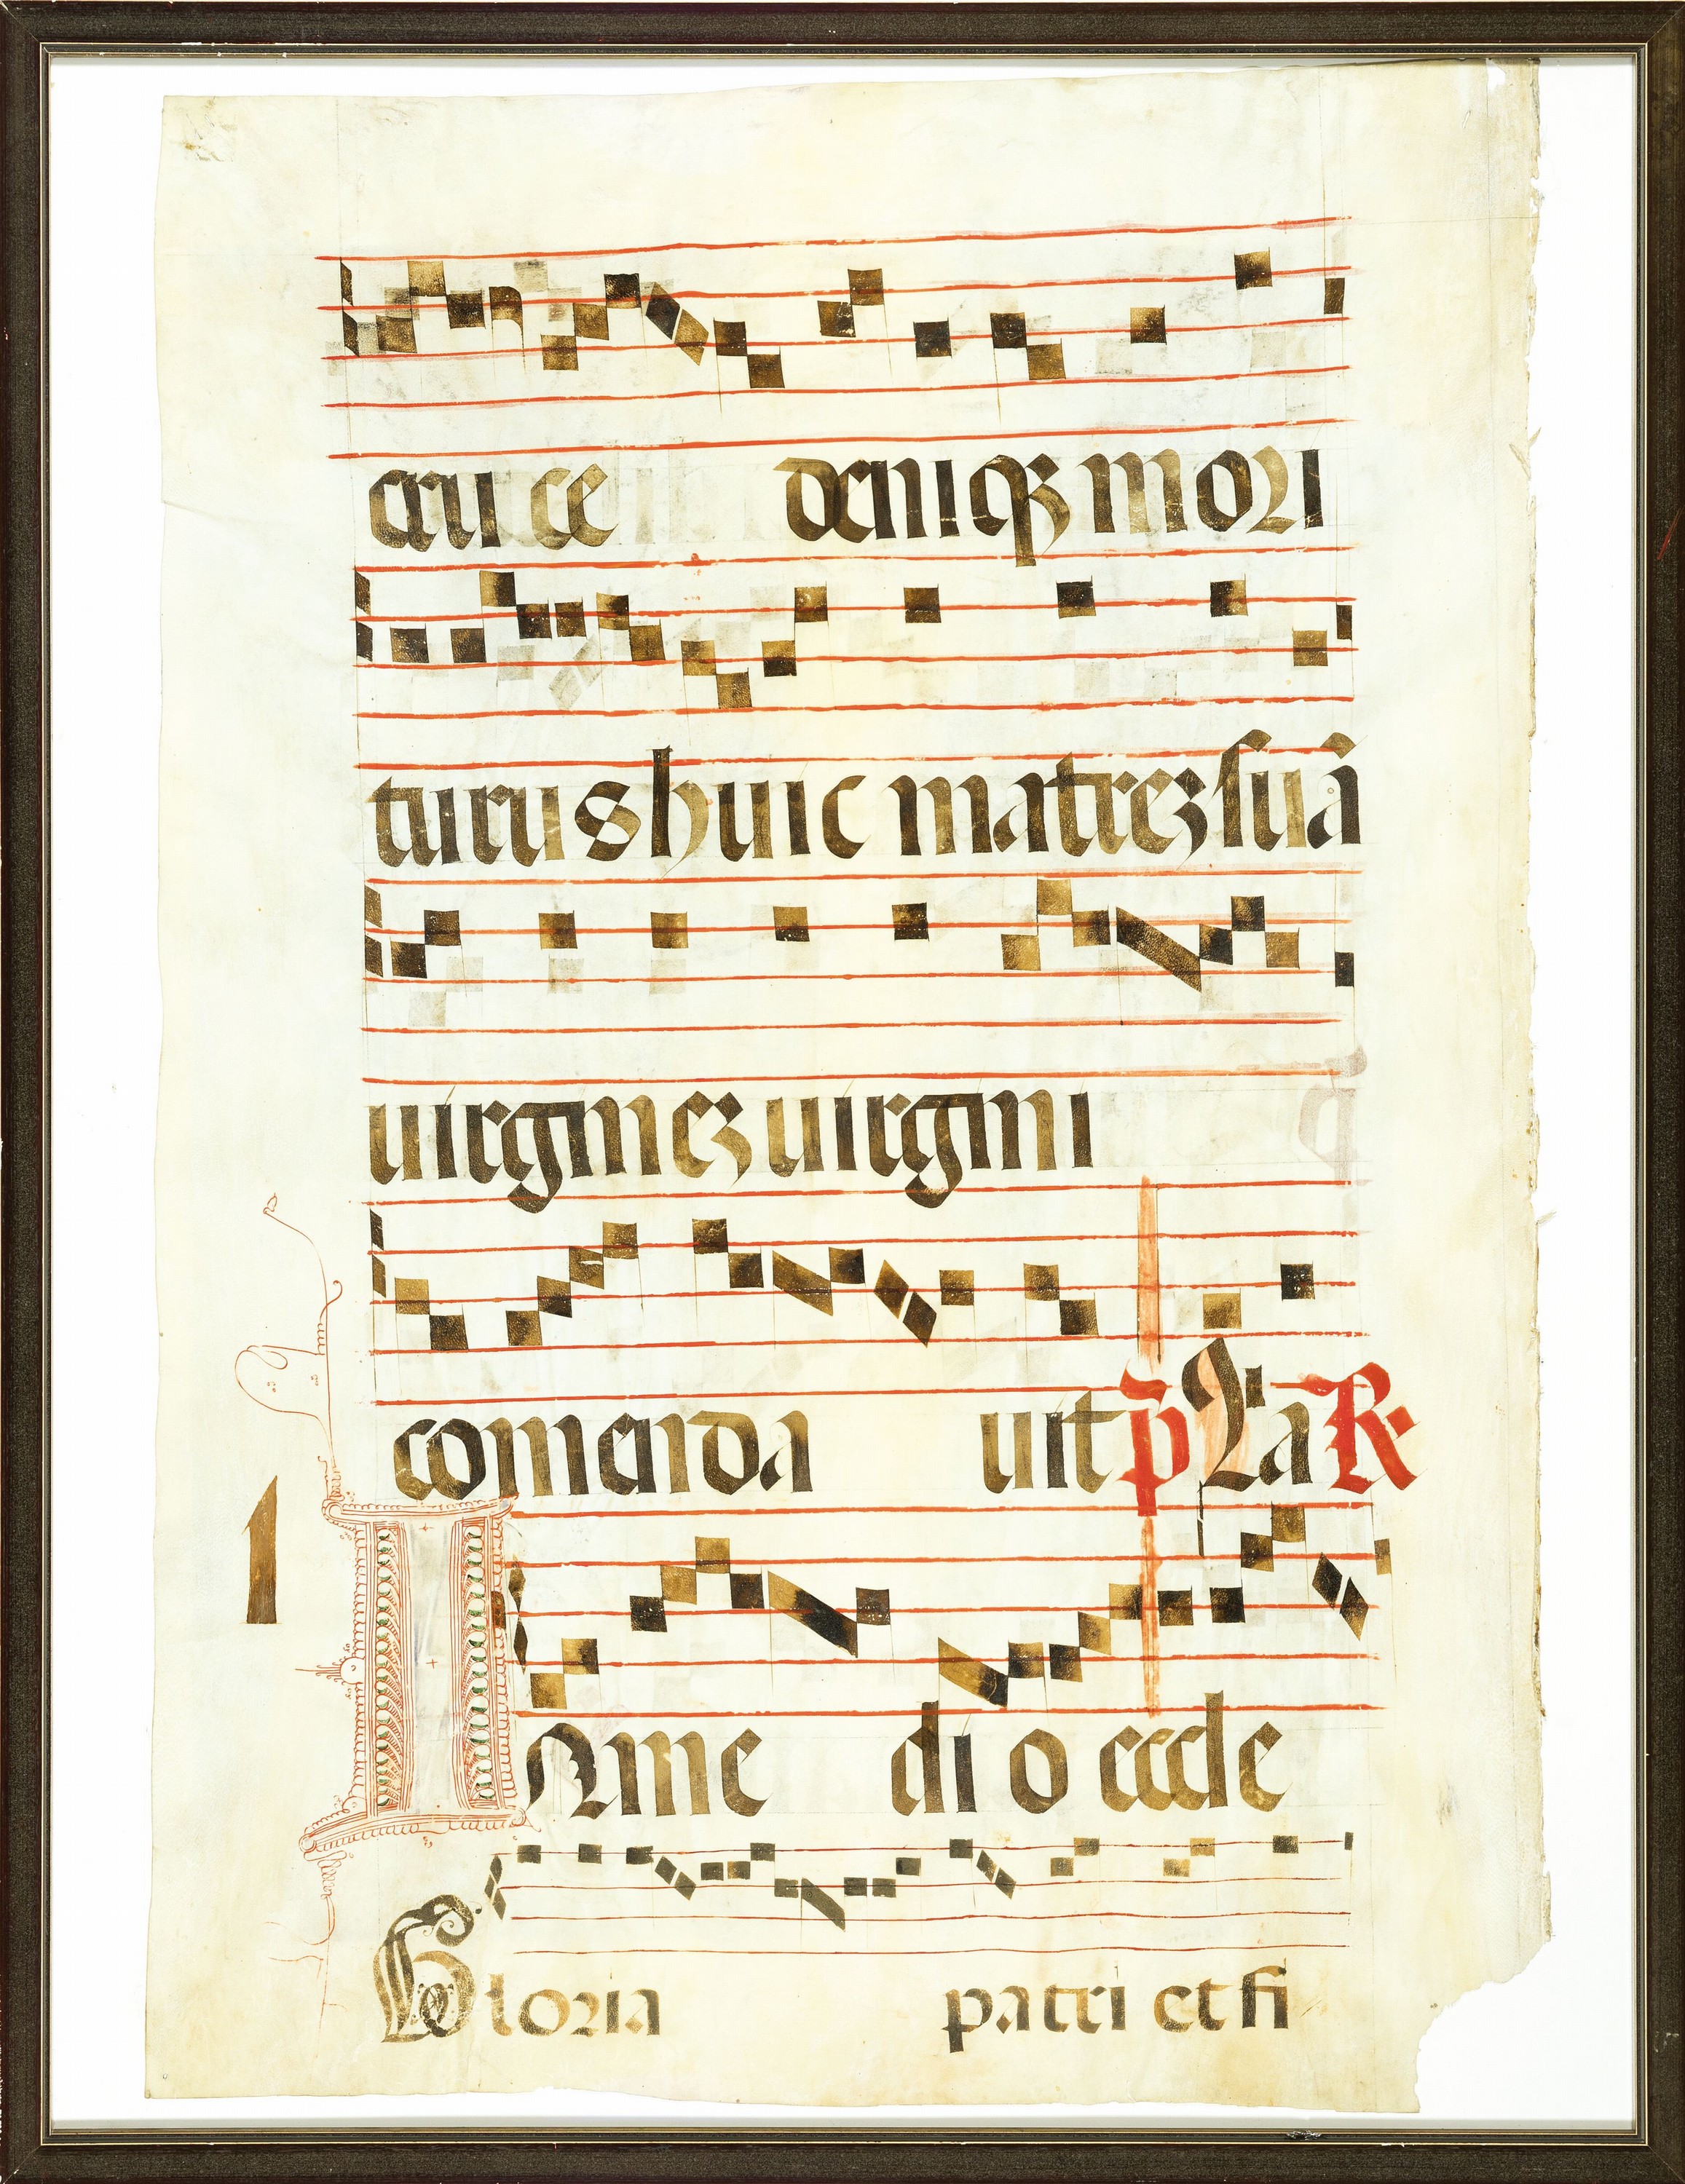 cru ce deniqꝫ mori
turus huic matrēꝫ suā
uirgineꝫ uirgini
comenda uit p̄ La R
I N me di o eccle
Gloria patri et fi